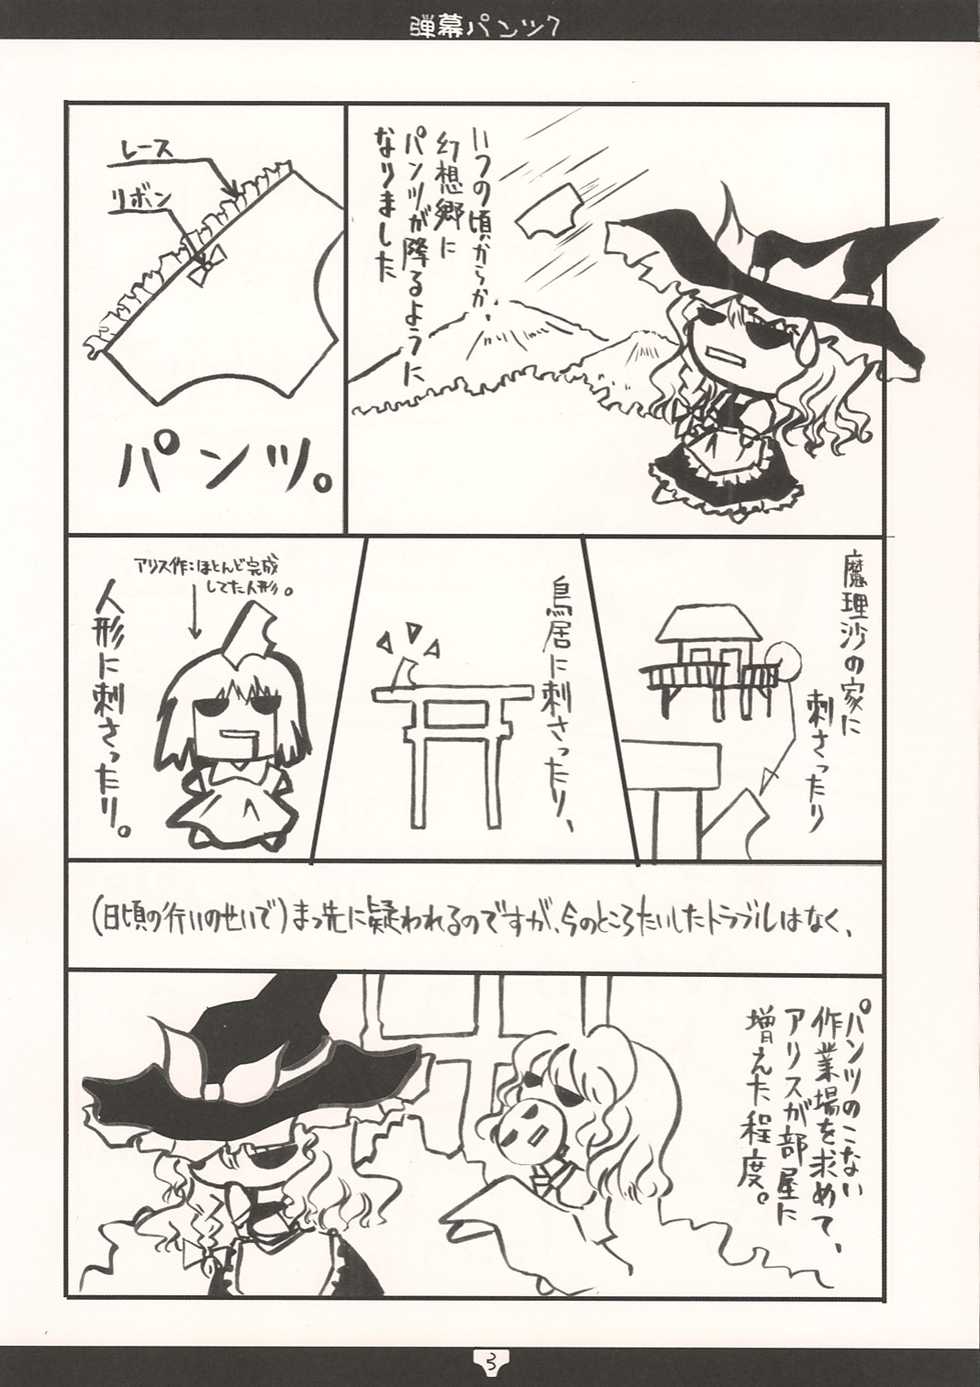 弾幕パンツ7
いつの頃からか、
幻想郷に
パンツが降るように
なりました
レース
リボン
パンツ。
魔理沙の家に
刺さったり
鳥居に刺さったり、
アリス作:ほとんど完成
してた人形。
人形に刺さったり。
(日頃の行いのせいで)まっ先に疑われるのですが、今のところたいしたトラブルはなく、
パンツのこない
作業場を求めて、
アリスが部屋に
増えた程度。
3